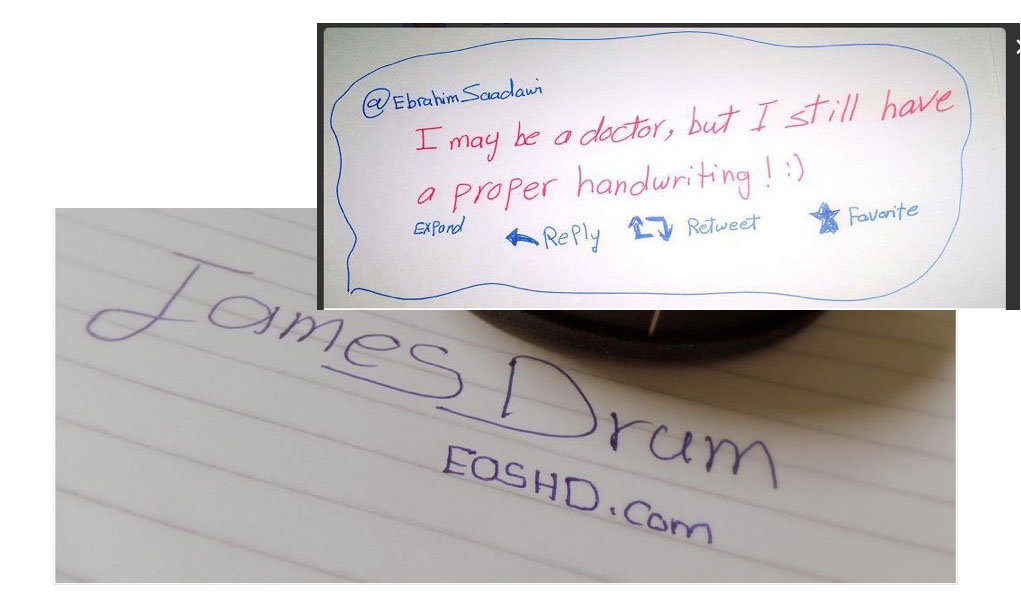 @Ebrahim_Saadawi
I may be a doctor, but I still have
a proper handwriting! :)
Expand Reply Retweet Favorite
James Drum
EOSHD.com